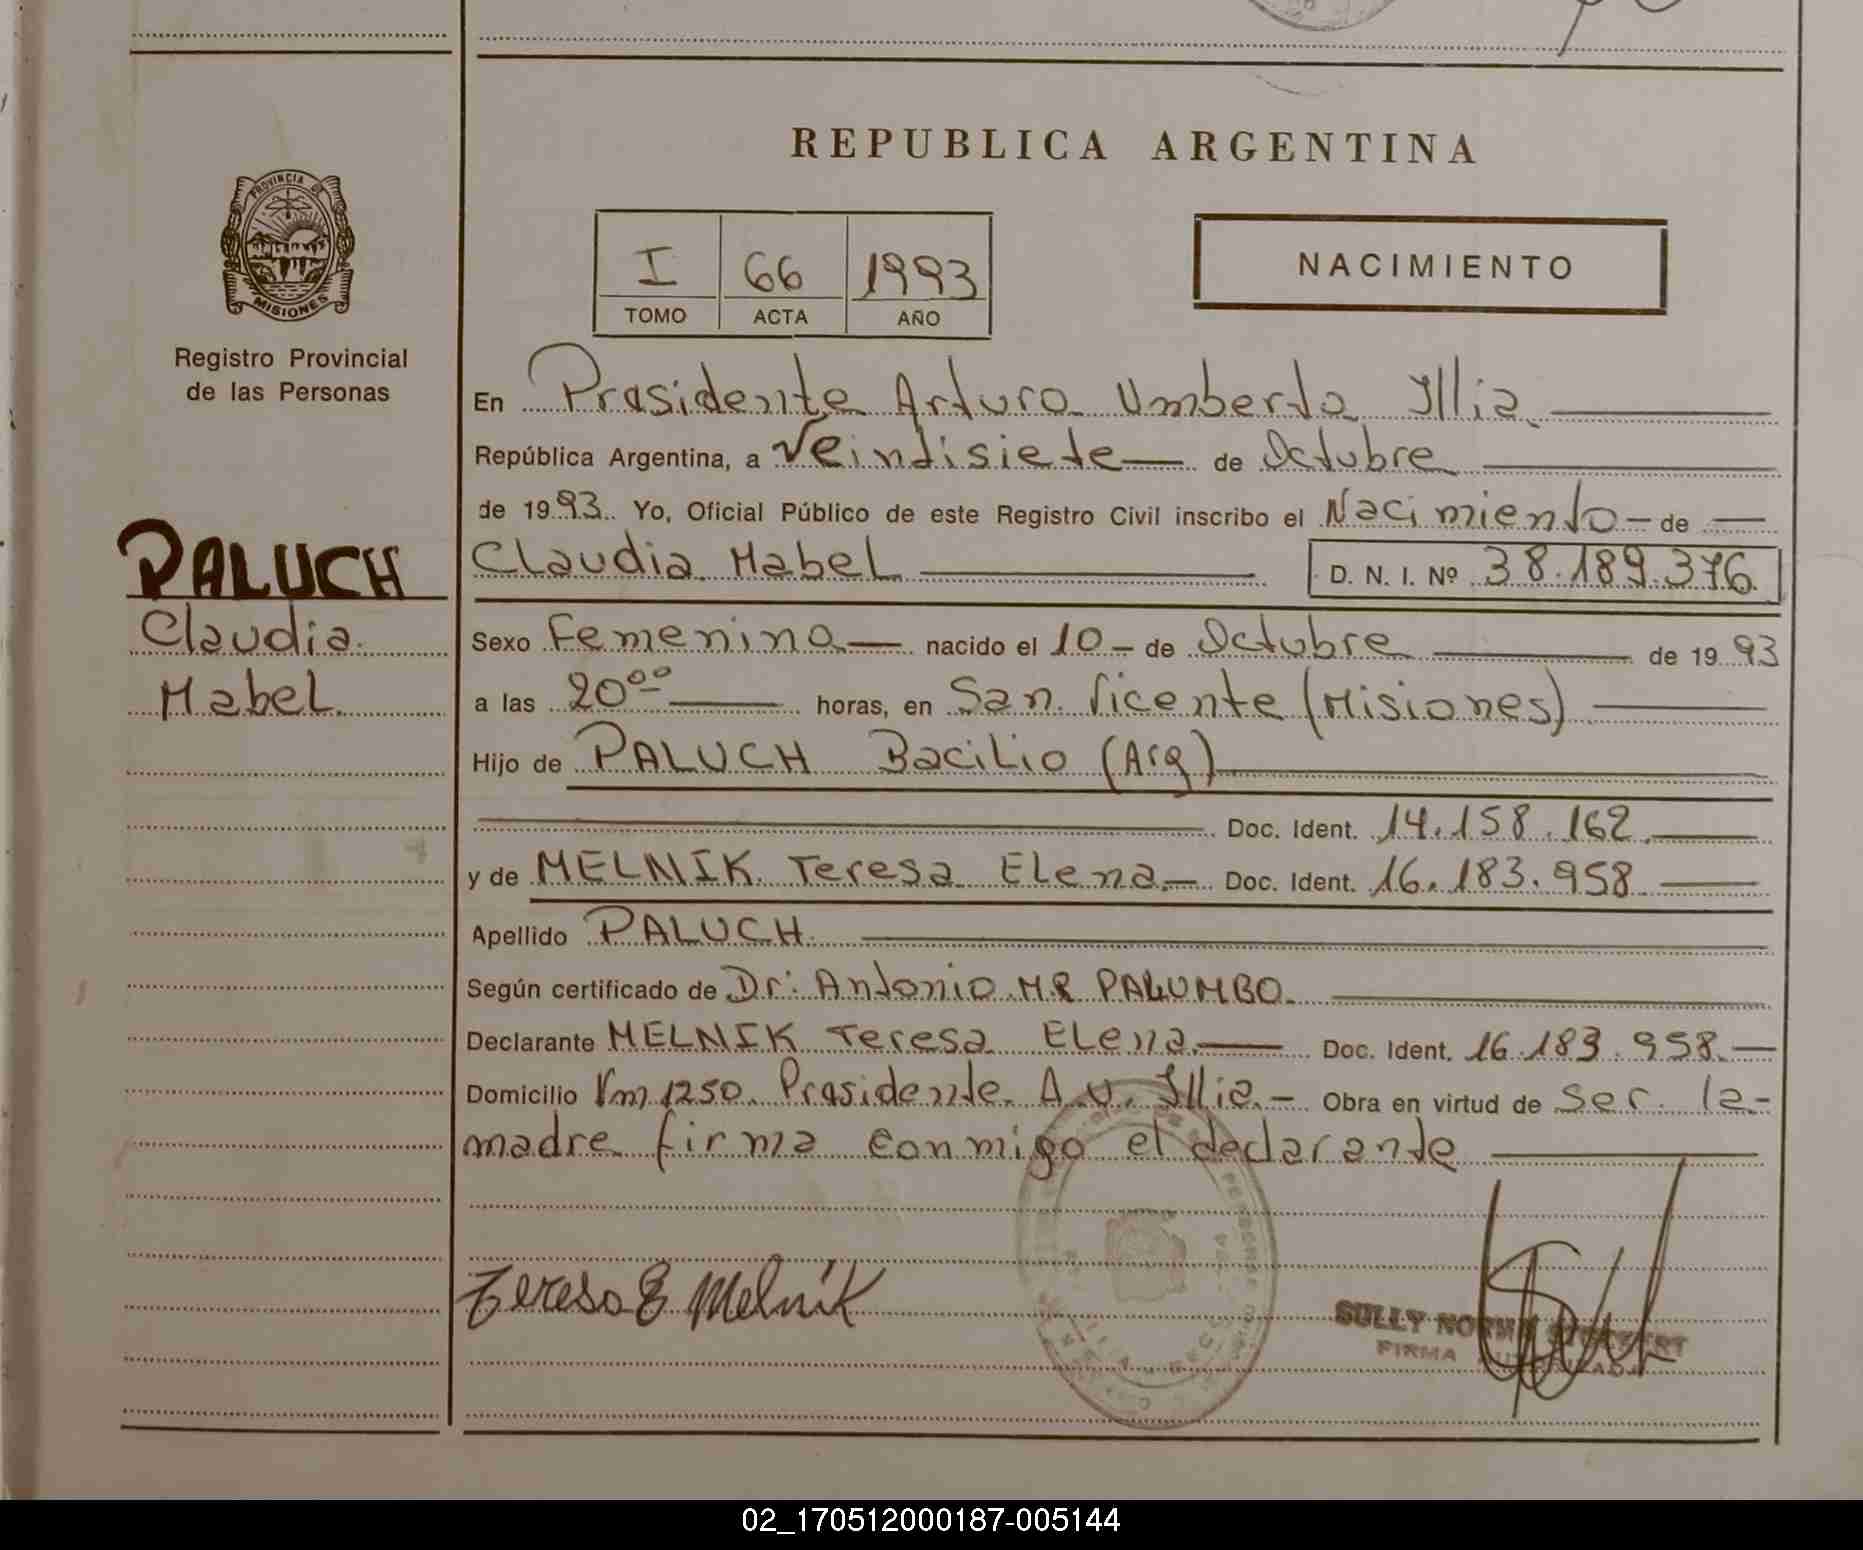 REPUBLICA ARGENTINA
PROVINCIA DE
MISIONES
Registro Provincial
de las Personas
I 66 1993
TOMO ACTA AÑO
NACIMIENTO
PALUCH
Claudia
Mabel
En Presidente Arturo Umberto Illia
República Argentina, a Veintisiete de Octubre
de 1993. Yo, Oficial Público de este Registro Civil inscribo el Nacimiento de
Claudia Mabel D. N. I. Nº 38.189.376
Sexo Femenino nacido el 10 de Octubre de 1993
a las 20⁰⁰ horas, en San Vicente (Misiones)
Hijo de PALUCH Bacilio (Arg)
Doc. Ident. 14.158.162
y de MELNIK Teresa Elena Doc. Ident. 16.183.958
Apellido PALUCH
Según certificado de Dr: Antonio M R PALUMBO
Declarante MELNIK Teresa Elena Doc. Ident. 16.183.958
Domicilio Km 1250 Presidente A. U. Illia Obra en virtud de Ser la
madre firma conmigo el declarante
Teresa E Melnik
SULLY NORMA
FIRMA AUTORIZADA
02_170512000187-005144